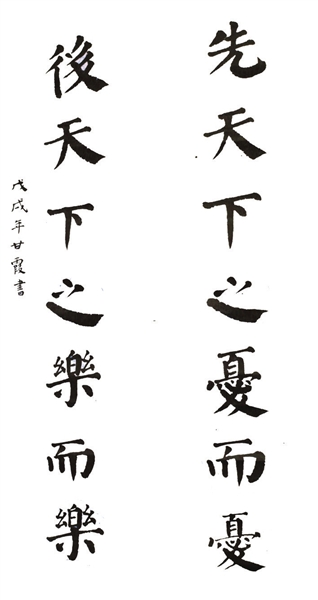 先天下之憂而憂
後天下之樂而樂
戊戌年甘霞書